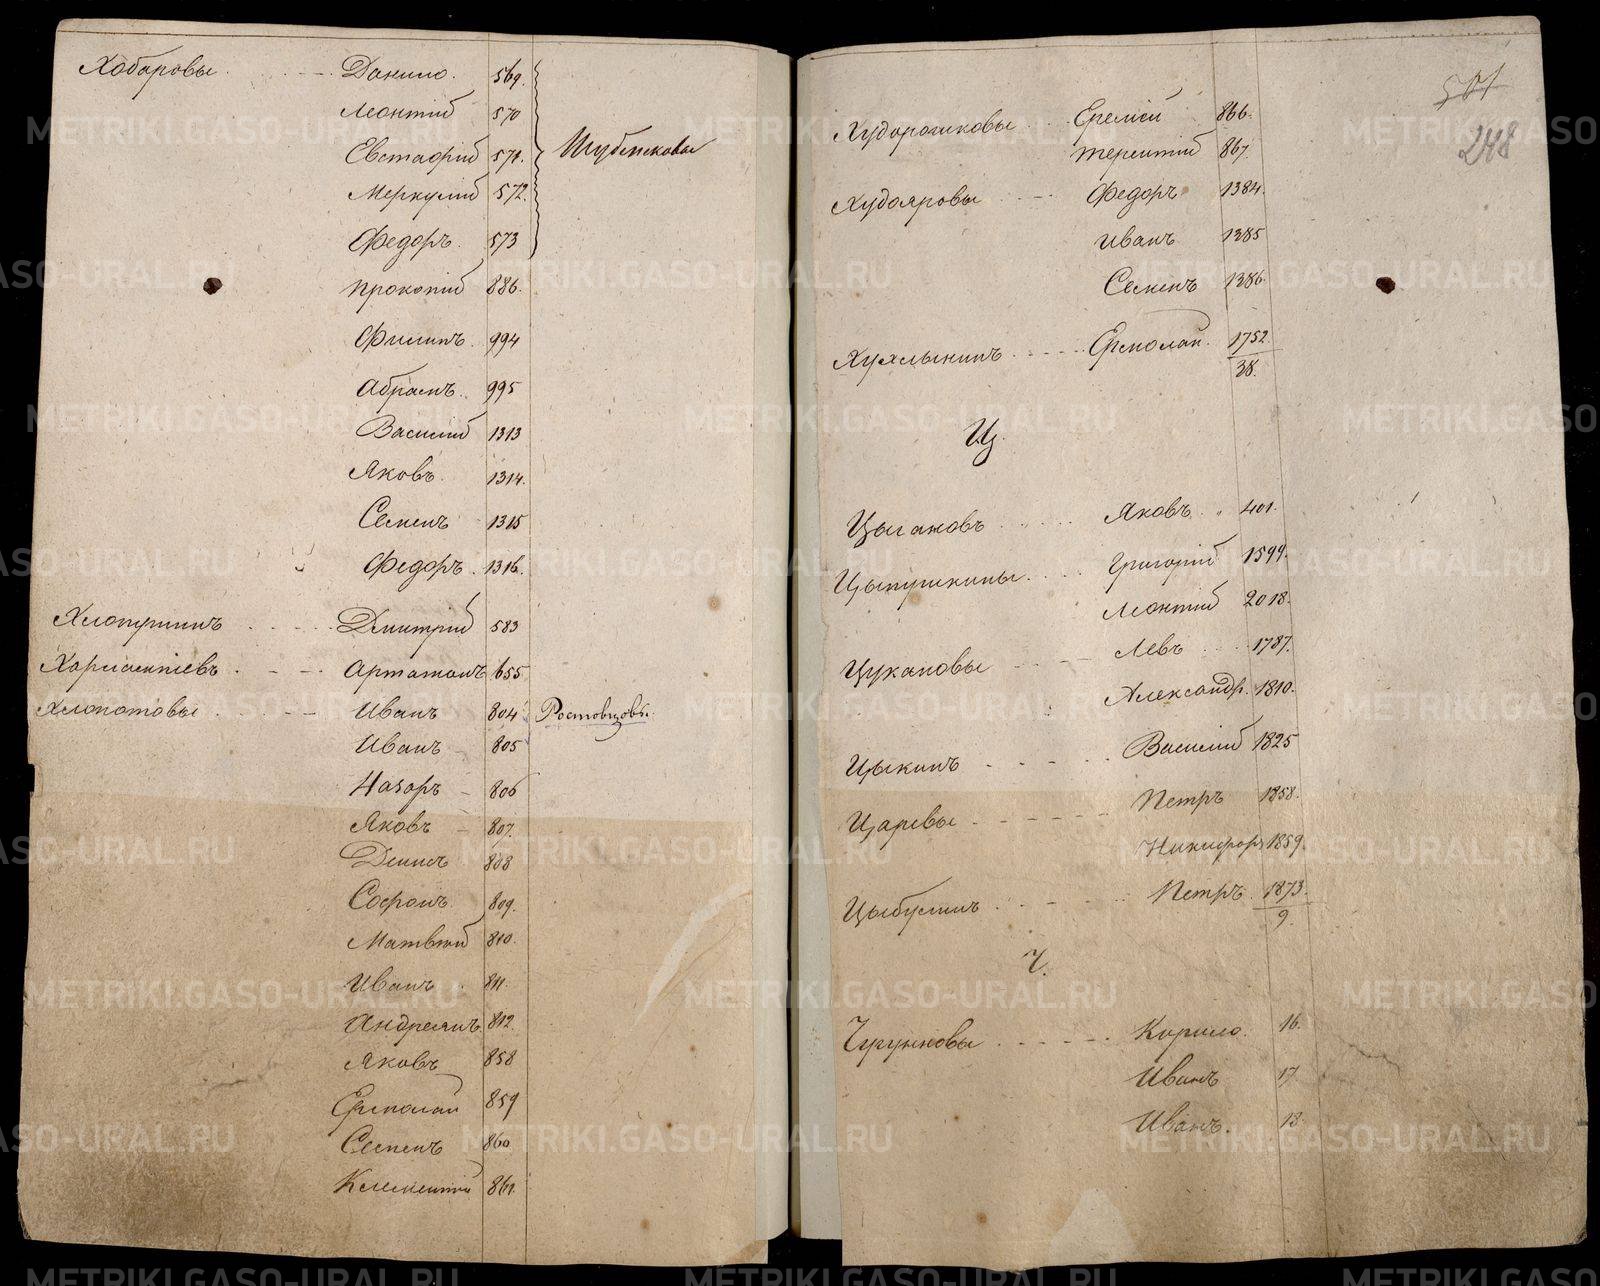 Хабаровы Данило. 569.
Леонтій 570
Евстафій 571.
Меркулій 572.
Федоръ 573
Прокопій 886.
Филипъ 994
Абрамъ 995
Василій 1313
Яковъ 1314.
Семенъ 1315
Федоръ 1316.
Хлопушинъ Дмитрій 583
Харлампіевъ Артамонъ 655
Хлопотовы Иванъ 804 Ростовцовы.
Иванъ 805
Назаръ 806
Яковъ 807.
Денисъ 808
Софонъ 809.
Матвѣй 810.
Иванъ 811.
Андреянъ 812.
Яковъ 858
Ермолай 859
Семенъ 860
Клементій 861.
501
248
Худорошковы Еремѣй 866.
Терентій 867.
Худояровы Федоръ 1384.
Иванъ 1385
Семенъ 1386.
Ермолай. 1752
38.
Ц.
Цыгановъ Яковъ 401.
Цыпушкины Григорій 1599.
Леонтій 2018.
Цукановы Левъ 1787.
Александр. 1810.
Цыкинъ Василій 1825
Царевы Петръ 1858.
Никифоръ 1859.
Цыбулинъ Петръ 1873.
9.
Ч.
Чугунковы Кирило. 16.
Иванъ 17
Иванъ. 18.
METRIKI.GASO-URAL.RU